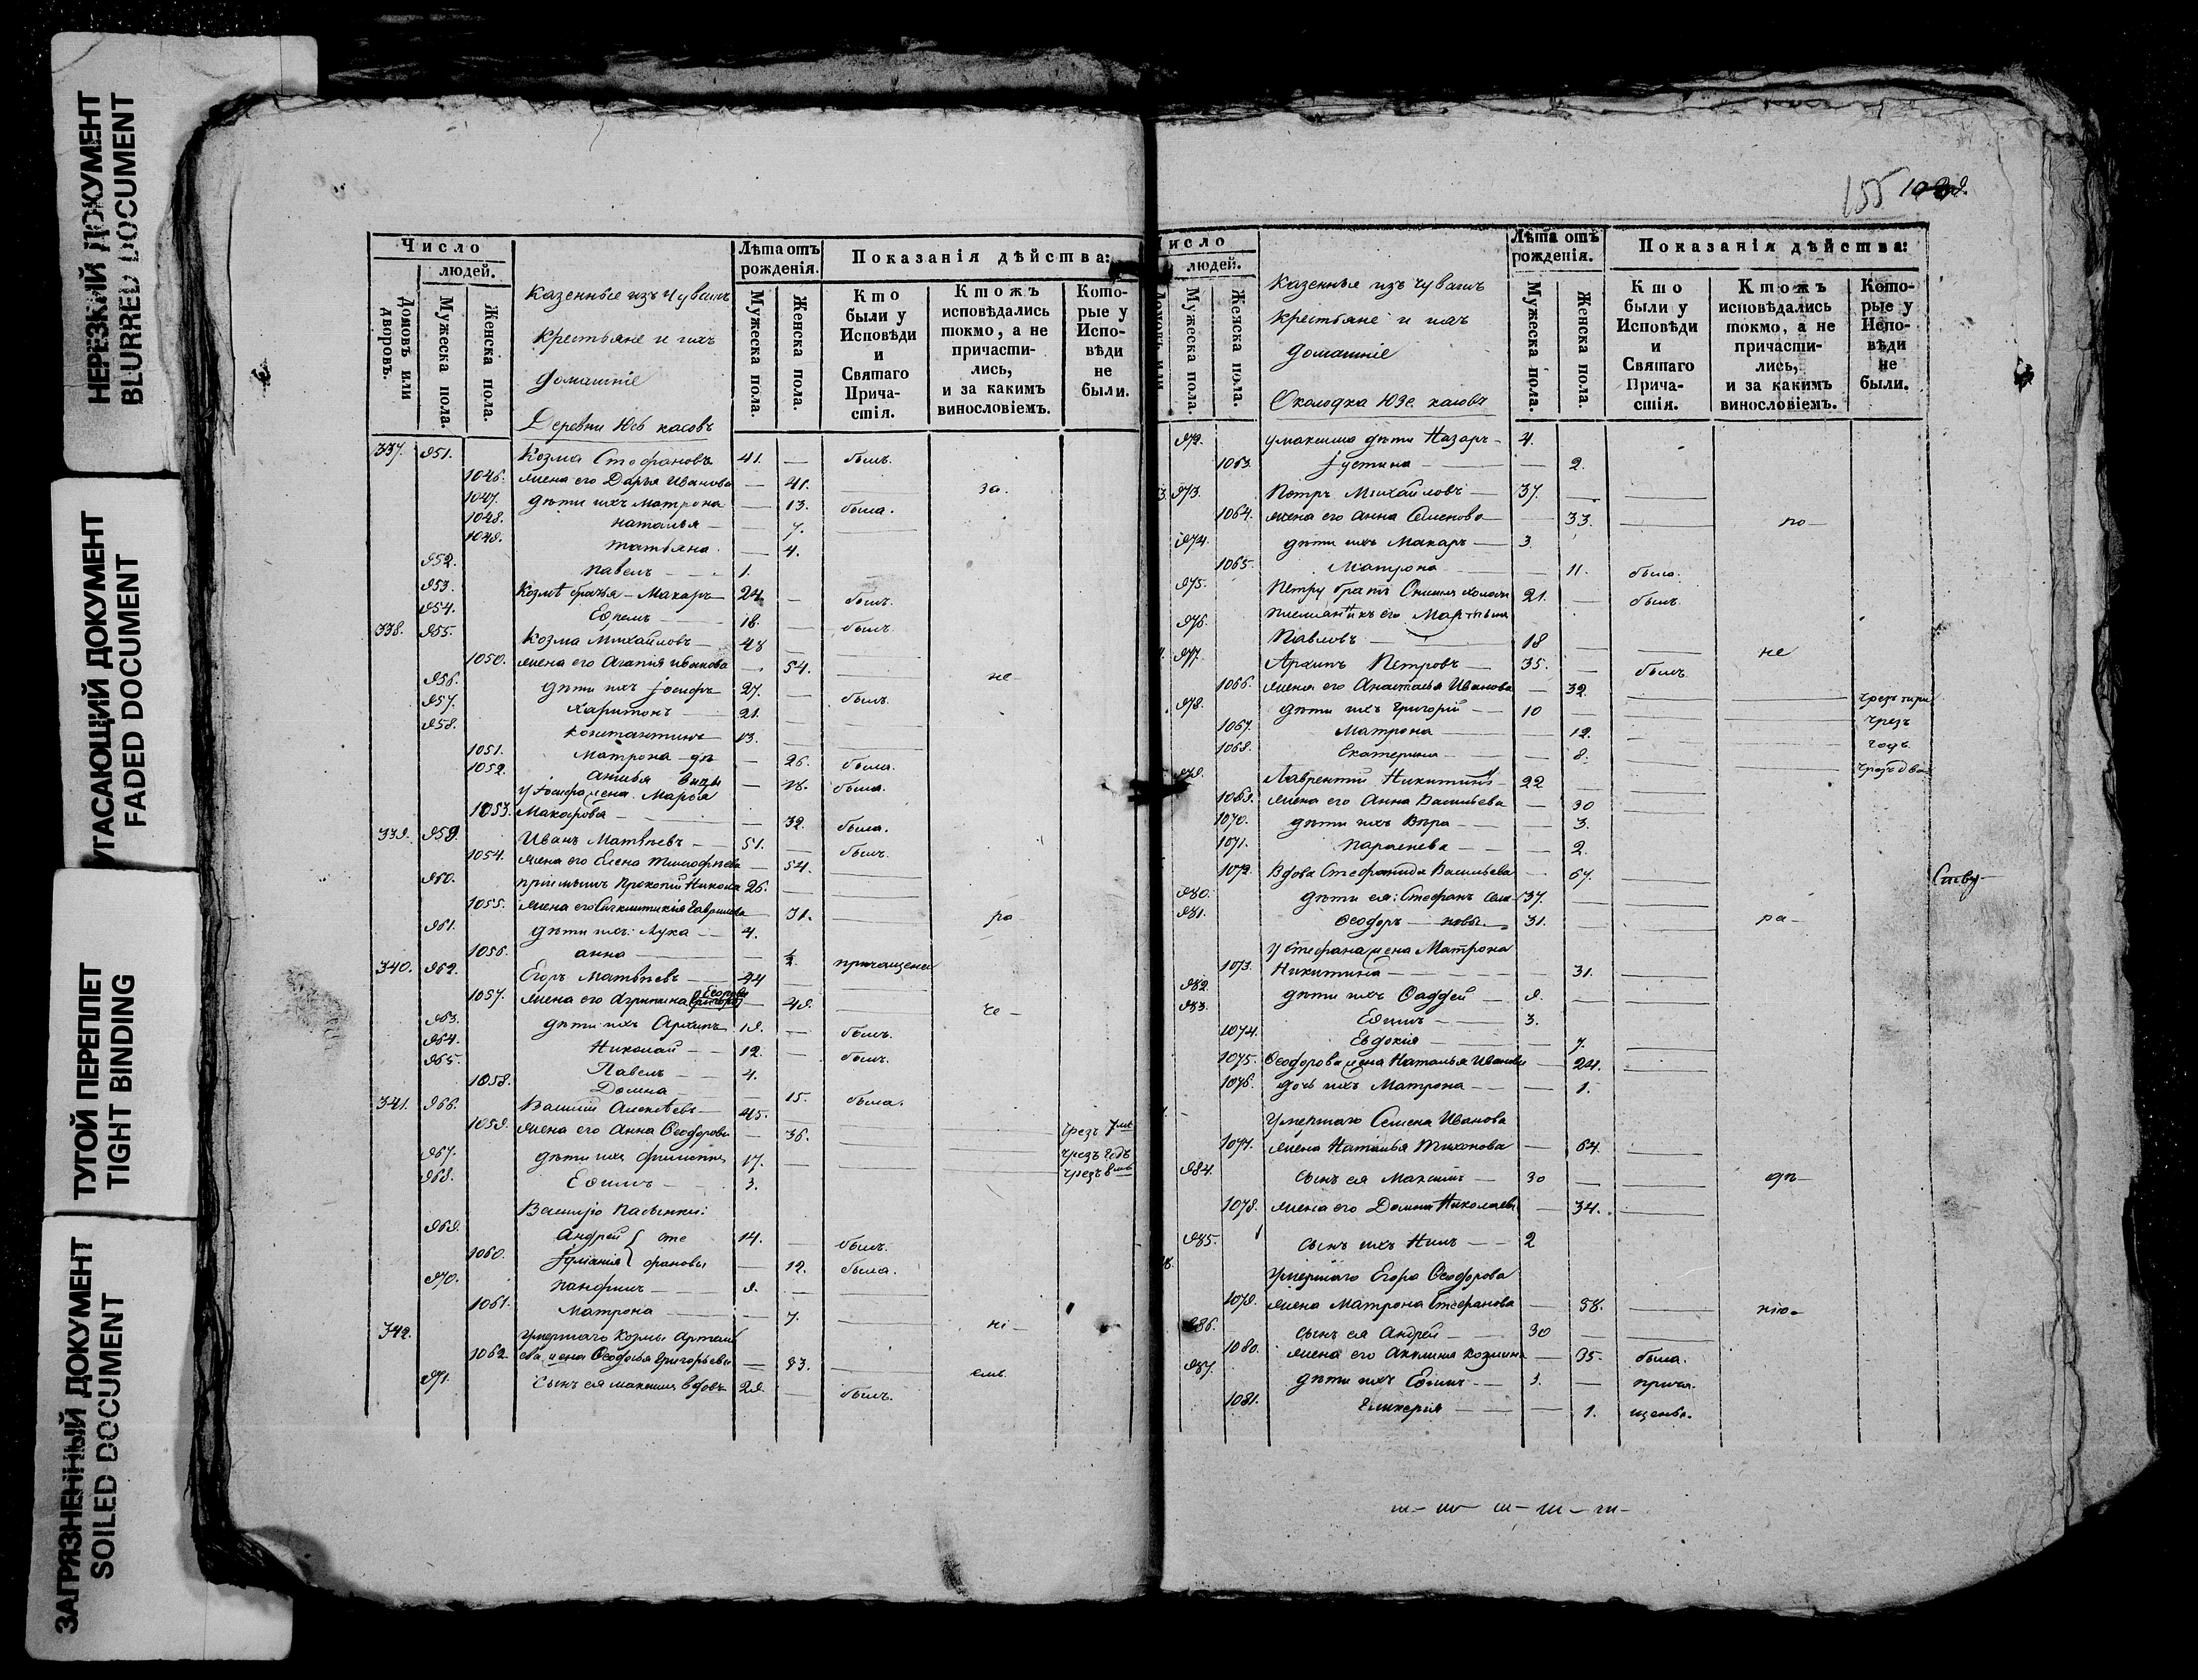 НЕРЕЗКИЙ ДОКУМЕНТ
BLURRED DOCUMENT
УГАСАЮЩИЙ ДОКУМЕНТ
FADED DOCUMENT
ТУГОЙ ПЕРЕПЛЕТ
TIGHT BINDING
ЗАГРЯЗНЕННЫЙ ДОКУМЕНТ
SOILED DOCUMENT
Число
людей.
Домовъ или дворовъ.
Мужеска пола.
Женска пола.
Казенные изъ Чувашъ
Крестьяне и ихъ
Домашніе
Деревни
Лѣта отъ рожденія.
Мужеска пола.
Женска пола.
Показанія дѣйства:
Кто были у Исповѣди и Святаго Прича- стія.
Ктожъ исповѣдались токмо, а не причасти- лись, и за какимъ винословіемъ.
Кото- рые у Испо- вѣди не были.
337. 951. Козма Стефановъ 41. — былъ.
1046. жена его Дарья Иванова — 41. — за
1047. дѣти ихъ Матрона — 13. была.
1048. Наталья — 7. —
1049. Татьяна — 4.
952. Павелъ 1.
953. Козмѣ братья Макаръ 24. — былъ.
954. Ефремъ 18. былъ.
338. 955. Козма Михайловъ 48 — —
1050. жена его Агапія Иванова — 54. — не
956. дѣти ихъ Іосифъ 27. — былъ.
957. Харитонъ 21. — —
958. Константинъ 13. — —
1051. Матрона — 26. была.
1052. Анисья — 18. была.
у Іосифа жена Марья
1053. Макарова — 32. была.
339. 959. Иванъ Матвѣевъ 51. — былъ.
1054. жена его Елена Тимофѣева — 54. —
960. пріемышъ Прокопій 26. — —
1055. жена его Гаврилова — 31. — ро
961. дѣти ихъ: Лука 4.
1056. Анна — ½. причащены
340. 962. Егоръ Матвѣевъ 44 — —
1057. жена его Агрипина — 49. — че
963. дѣти ихъ Архипъ 19. — былъ.
964. Николай 12. — былъ.
965. Павелъ 4.
1058. Домна — 15. была.
341. 966. Василій Алексѣевъ 45. — —
1059. жена его Анна Ѳеодорова — 36. — чрезъ 7
967. дѣти ихъ Филиппъ 17. — — чрезъ годъ
968. Ефимъ 3. чрезъ 8
Василію пасынки:
969. Андрей Сте 14. — былъ.
1060. Іуліанія фановы — 12. была.
970. Панфилъ 9. —
1061. Матрона — 7. — ні
342. Умершаго Козмы Артемь
1062. ева жена Ѳеодосья Григорьева — 83. — емъ
971. сынъ ея Максимъ вдовъ 29. — былъ.
155
Число
людей.
Домовъ или
Мужеска пола.
Женска пола.
Казенные изъ Чувашъ
Крестьяне и ихъ
Домашніе
Околодка
Лѣта отъ рожденія.
Мужеска пола.
Женска пола.
Показанія дѣйства:
Кто были у Исповѣди и Святаго Прича- стія.
Ктожъ исповѣдались токмо, а не причасти- лись, и за какимъ винословіемъ.
Кото- рые у Испо- вѣди не были.
972. у Максима дѣти Назаръ 4.
1063. Іустина — 2.
973. Петръ Михайловъ 37. — —
1064. жена его Анна Семенова — 33. — по
974. дѣти ихъ Макаръ 3.
1065. Матрона — 11. была.
975. Петру братъ 21. — былъ.
племянникъ его Мартынъ
976. Павловъ 18 — — не
977. Архипъ Петровъ 35. — былъ
1066. жена его Анастасья Иванова — 32. — — чрезъ три
978. дѣти ихъ Григорій 10 — — — чрезъ
1067. Матрона — 12. — — годъ
1068. Екатерина — 8. — — чрезъ два
979. Лаврентій Никитинъ 22 — —
1069. жена его Анна Васильева — 30
1070. дѣти ихъ Вѣра — 3.
1071. Парасковья — 2.
1072. Вдова Стефанида Васильева — 67. —
980. дѣти ея: Стефанъ Семе 37. — —
981. Ѳеодоръ новы 31. — — ра
у Стефана жена Матрона
1073. Никитина — 31. —
982. дѣти ихъ Ѳаддей 9. — —
983. Ефимъ 3.
1074. Евдокія — 7. —
1075. Ѳеодорова жена Наталья Иванова — 24. —
1076. дочь ихъ Матрона — 1.
Умершаго Семена Иванова
1077. жена Наталья Тихонова — 64. —
984. сынъ ея Максимъ 30 — — дѣ
1078. жена его Домна Николаева — 34. —
985. сынъ ихъ Нилъ 2
Умершаго Егора Ѳеодорова
1079. жена Матрона Стефанова — 58. — нію
986. сынъ ея Андрей 30 — —
1080. жена его Акилина Козмина — 35. была.
987. дѣти ихъ Ефимъ 3. — прича
1081. Гликерія — 1. щены.